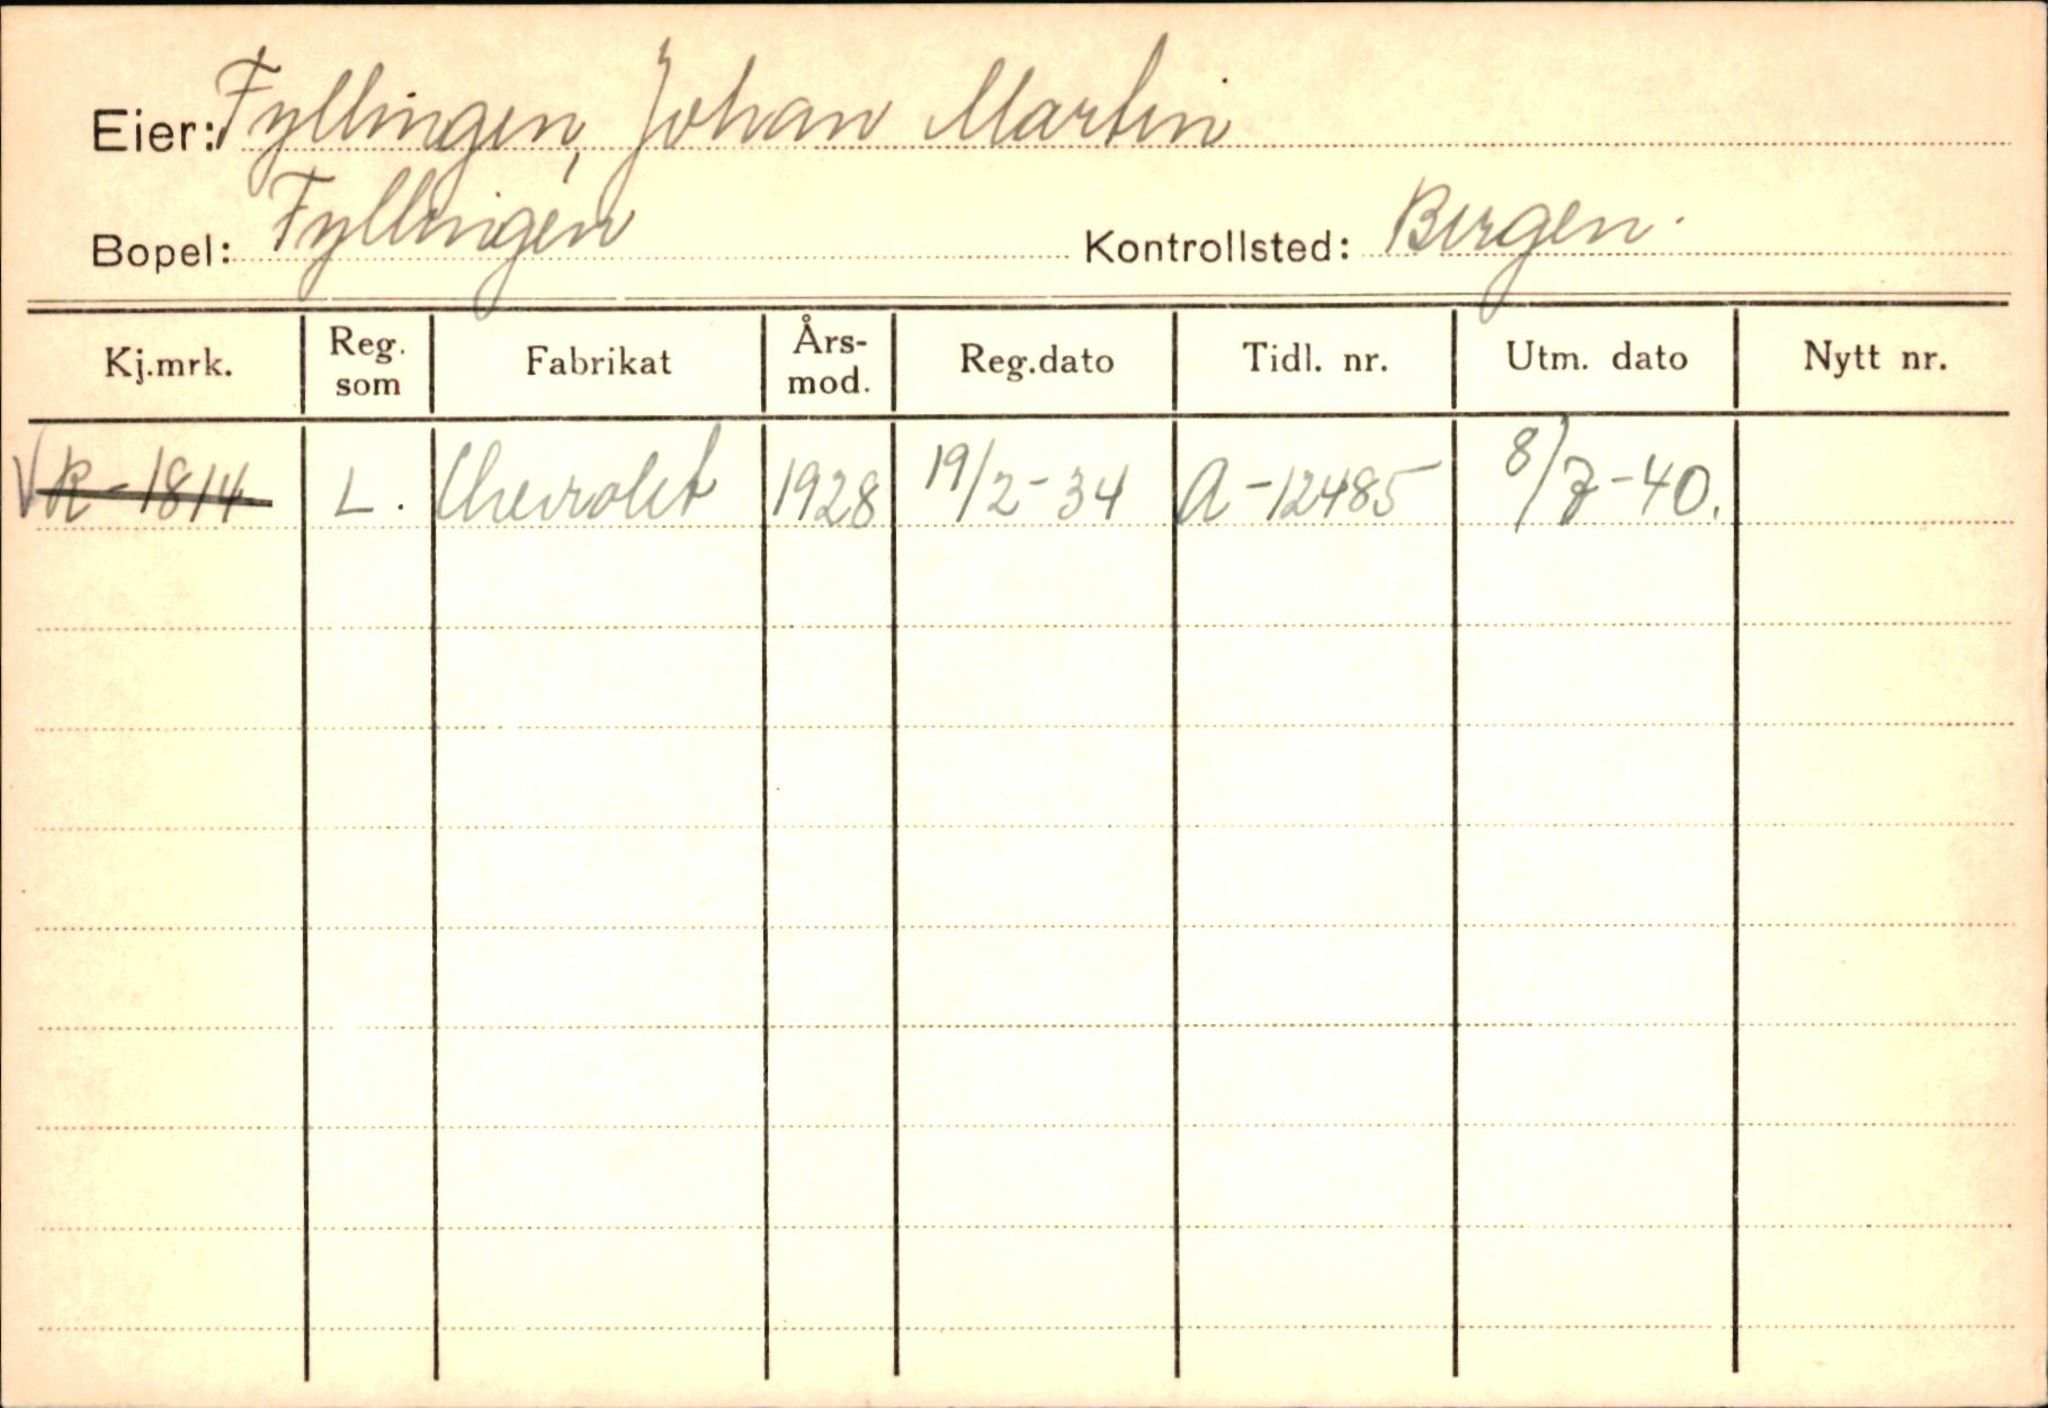 Eier: Fyllingen, Johan Martin
Bopel: Fyllingen Kontrollsted: Bergen.
Kj.mrk. Reg. som Fabrikat Års-mod. Reg.dato Tidl. nr. Utm. dato Nytt nr.
V R-1814 L. Chevrolet 1928 19/2-34 A-12485 8/7-40.